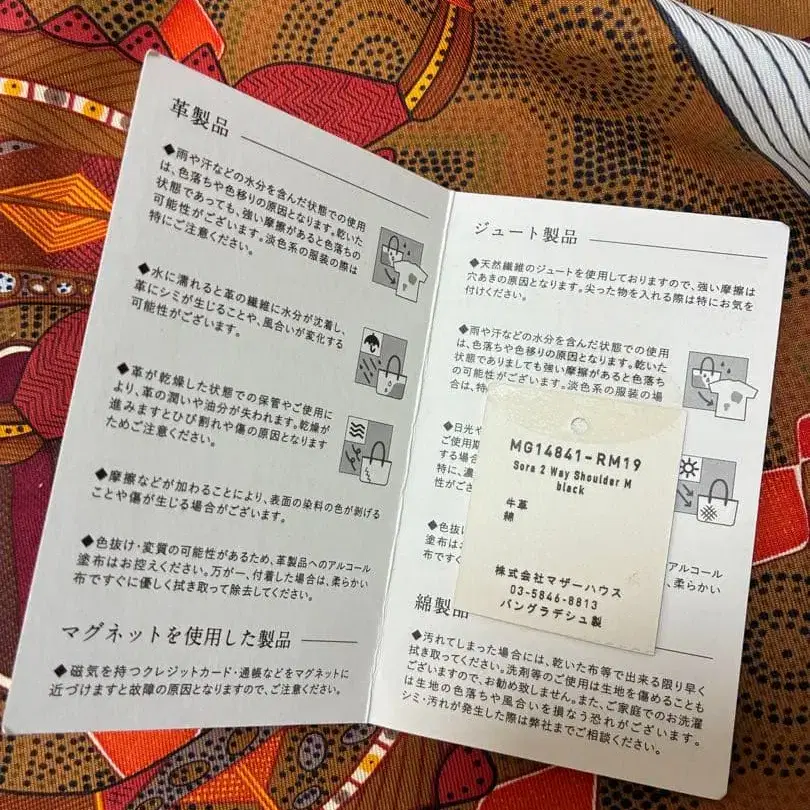 革製品
◆雨や汗などの水分を含んだ状態での使用
は、色落ちや色移りの原因となります。乾いた
状態であっても、強い摩擦があると色落ちの
可能性がございます。淡色系の服装の際は
特にご注意ください。
◆水に濡れると革の繊維に水分が沈着し、
革にシミが生じることや、風合いが変化する
可能性がございます。
◆革が乾燥した状態での保管やご使用に
より、革の潤いや油分が失われます。乾燥が
進みますとひび割れや傷の原因となります
ためご注意ください。
◆摩擦などが加わることにより、表面の染料の色が剥げる
ことや傷が生じる場合がございます。
◆色抜け・変質の可能性があるため、革製品へのアルコール
塗布はお控えください。万が一、付着した場合は、柔らかい
布ですぐに優しく拭き取って除去してください。
マグネットを使用した製品
◆磁気を持つクレジットカード・通帳などをマグネットに
近づけますと故障の原因となりますので、ご注意ください。
ジュート製品
◆天然繊維のジュートを使用しておりますので、強い摩擦は
穴あきの原因となります。尖った物を入れる際は特にお気を
付けください。
◆雨や汗などの水分を含んだ状態での使用
は、色落ちや色移りの原因となります。乾いた
状態でありましても強い摩擦があると色落ち
の可能性がございます。淡色系の服装の場
合は、特
◆日光や
ご使用期
する場合
特に、濃
性がござ
◆色抜け
アルコール
塗布はお
柔らかい
布ですぐ
MG14841-RM19
Sora 2 Way Shoulder M
black
牛革
綿
株式会社マザーハウス
03-5846-8813
バングラデシュ製
綿製品
◆汚れてしまった場合には、乾いた布等で出来る限り早く
拭き取ってください。洗剤等のご使用は生地を傷めることも
ございますので、お勧め致しません。また、ご家庭でのお洗濯
は生地の色落ちや風合いを損なう恐れがございます。
シミ・汚れが発生した際は弊社までご相談ください。